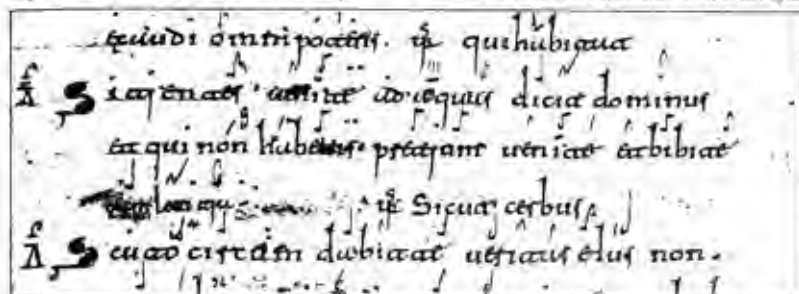 omnipotens. ps qui habitat
A Sitientes venite ad aquas dicit dominus
et qui non habetis pretium venite et bibite
ps Sicut cerbus
A Scuto circumdabit veritas eius non